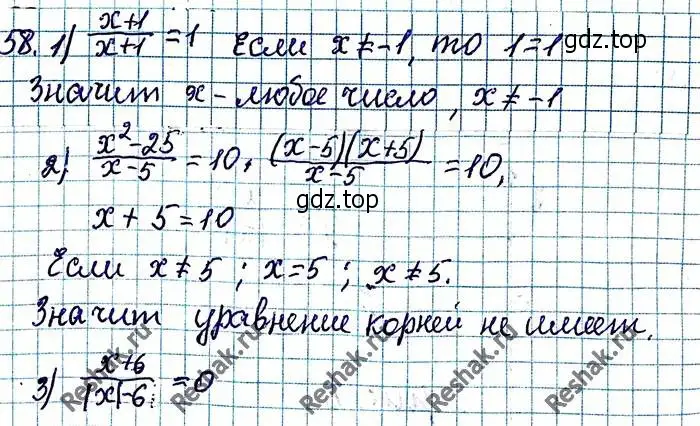 58. 1) (x+1)/(x+1) = 1 Если x ≠ -1, то 1 = 1
gdz.top
Значит x - любое число, x ≠ -1
2) (x² - 25)/(x - 5) = 10, ((x-5)(x+5))/(x-5) = 10,
gdz.top
x + 5 = 10
Если x ≠ 5 ; x = 5 ; x ≠ 5.
Значит уравнение корней не имеет.
3) (x+6)/(|x|-6) = 0
Reshak.ru
Reshak.ru
Reshak.ru
Reshak.ru